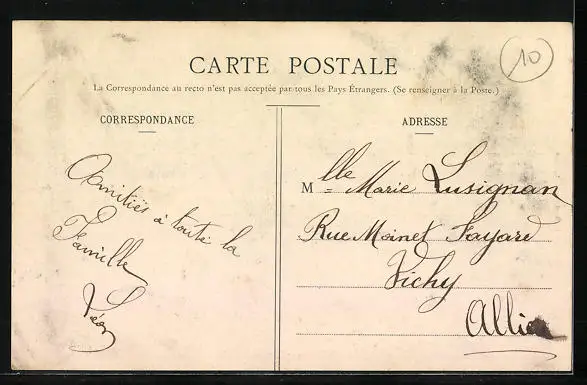 10
CARTE POSTALE
La Correspondance au recto n'est pas acceptée par tous les Pays Étrangers. (Se renseigner à la Poste.)
CORRESPONDANCE
Amitiés à toute la
Famille
Léon
ADRESSE
Mlle Marie Lusignan
Rue Moinet Fayard
Vichy
Allier